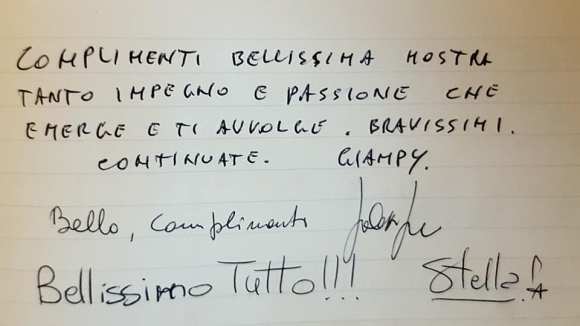 COMPLIMENTI BELLISSIMA MOSTRA
TANTO IMPEGNO E PASSIONE CHE
EMERGE E TI AVVOLGE. BRAVISSIMI.
CONTINUATE. GIAMPY.
Bello, complimenti
Bellissimo Tutto!!! Stella